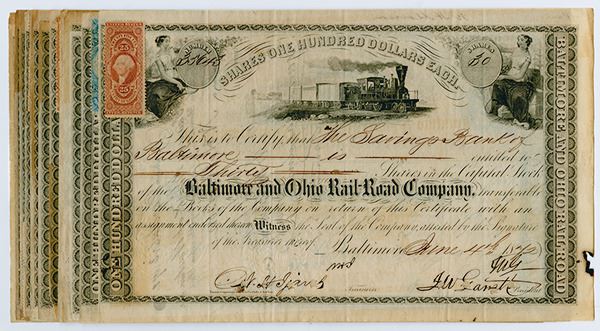 NUMBER
SHARES ONE HUNDRED DOLLARS EACH.
SHARES
30
25
25
ONE HUNDRED DOLLA
BALTIMORE AND OHIO RAIL ROAD
This is to Certify, that The Savings Bank of
Baltimore is entitled to
Thirty Shares in the Capital Stock
of the Baltimore and Ohio Rail-Road Company, transferable
on the Books of the Company on return of this Certificate with an
assignment endorsed thereon Witness the Seal of the Company, attested by the Signature
of the Treasurer thereof. Baltimore June 4th
Treasurer